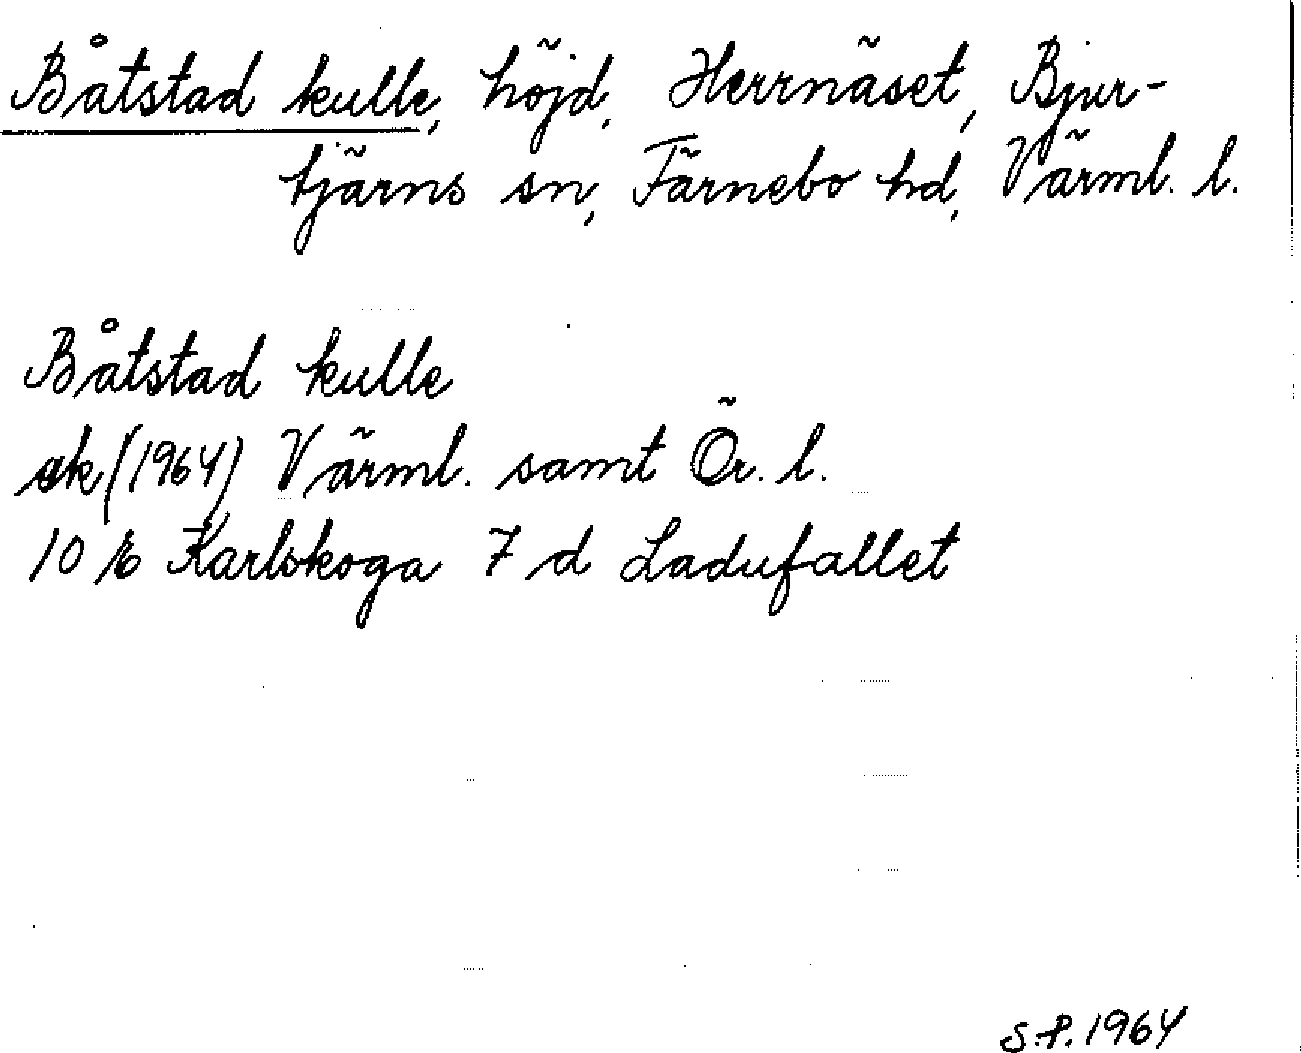 Båtstad kulle, höjd, Herrnäset, Bjur-
tjärns sn, Färnebo hd, Värml. l.
Båtstad kulle
ek (1964) Värml. samt Ör. l.
10 E Karlskoga 7 d Ladufallet
S.P. 1964